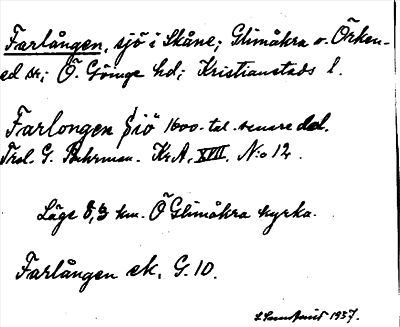 Farlången, sjö i Skåne; Glimåkra o. Örken-
ed snr; Ö. Göinge hd; Kristianstads l.
Farlongen Siö 1600-tal. senare del.
Trol. G. Buhrman. Kr.A. XVIII. N:o 12.
Läge 8,3 km. Ö Glimåkra kyrka.
Farlången ek. G. 10.
1937.